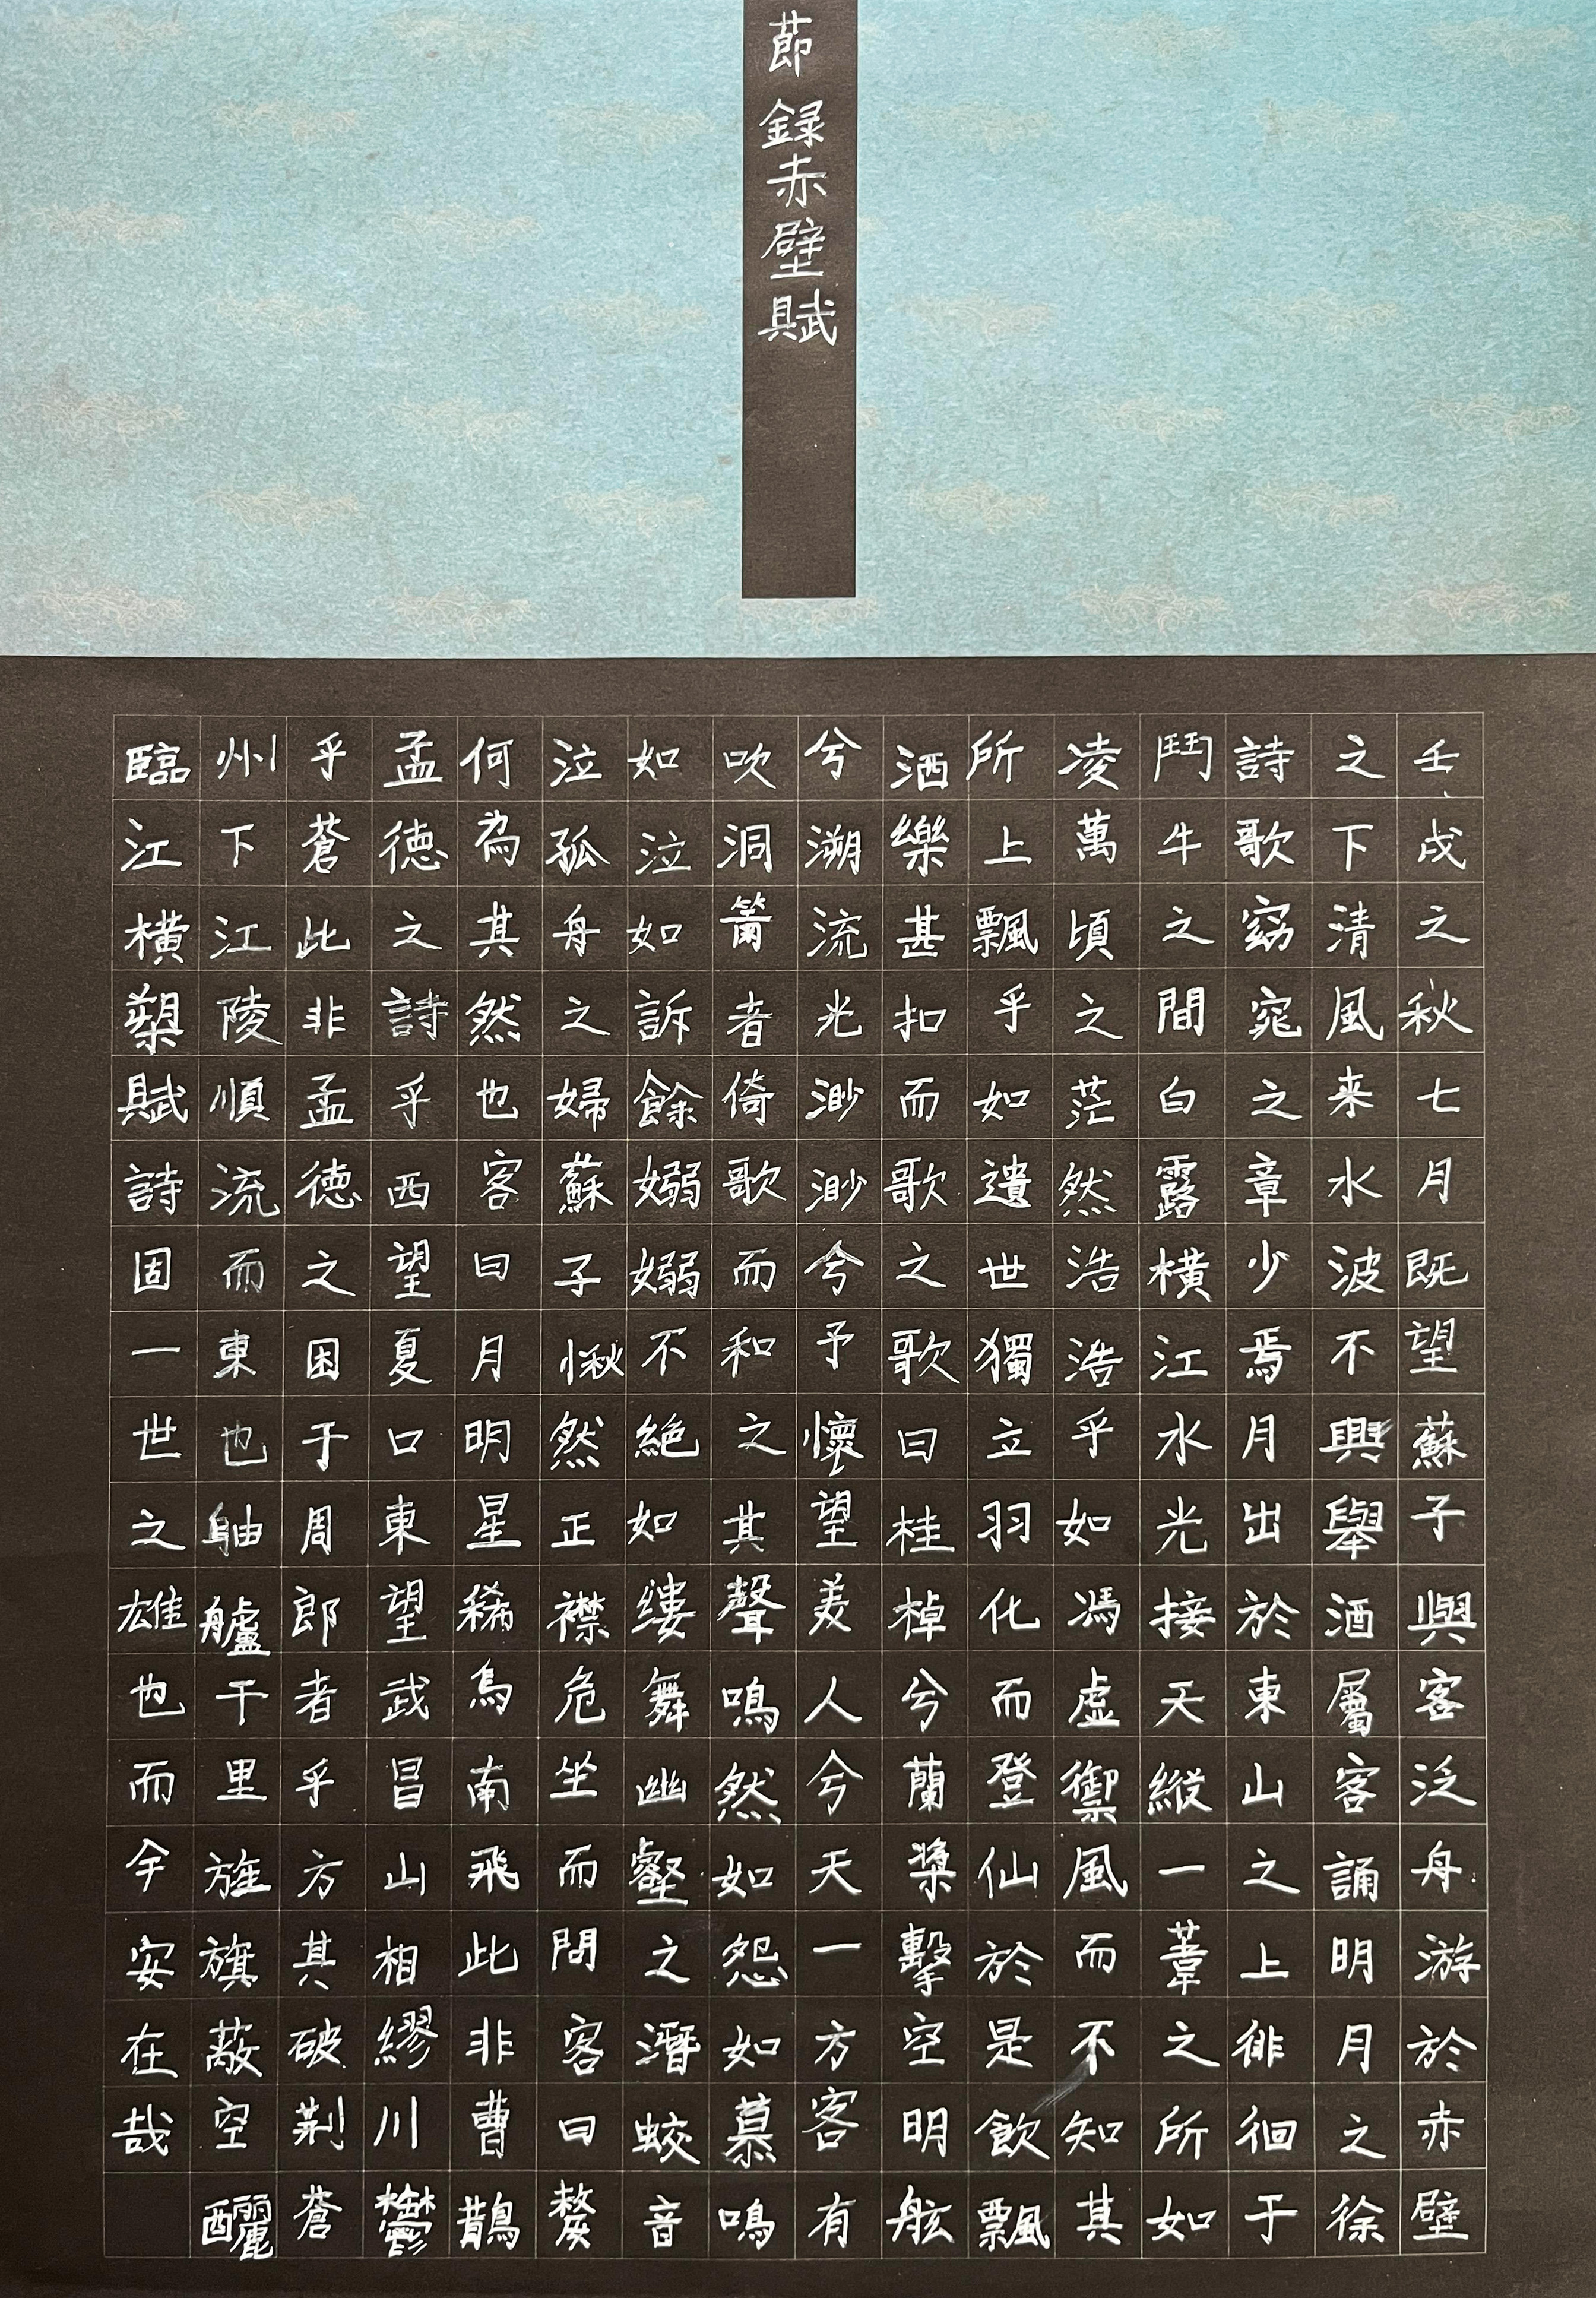 節録赤壁賦
壬戌之秋七月既望蘇子與客泛舟游於赤壁
之下清風来水波不興舉酒屬客誦明月之徐
詩歌窈窕之章少焉月出於東山之上徘徊于
鬥牛之間白露橫江水光接天縱一葦之所如
凌萬頃之茫然浩浩乎如馮虛禦風而不知其
所上飄乎如遺世獨立羽化而登仙於是飲飄
酒樂甚扣而歌之歌曰桂棹兮蘭槳擊空明舷
兮溯流光渺渺兮予懷望美人兮天一方客有
吹洞簫者倚歌而和之其聲鳴然如怨如慕鳴
如泣如訴餘嫋嫋不絕如縷舞幽壑之潛蛟音
泣孤舟之婦蘇子愀然正襟危坐而問客曰嫠
何為其然也客曰月明星稀烏南飛此非曹鵲
孟德之詩乎西望夏口東望武昌山相繆川鬱
乎蒼此非孟德之困于周郎者乎方其破荆蒼
州下江陵順流而東也舳艫千里旌旗蔽空釃
臨江橫槊賦詩固一世之雄也而今安在哉